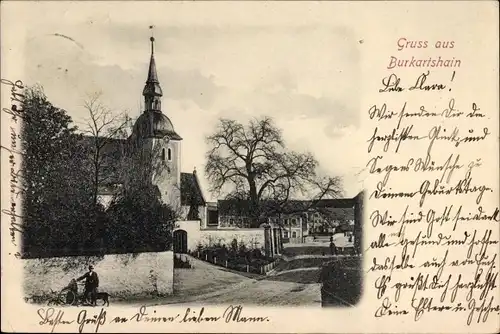 Gruss aus
Burkartshain
Liebe Clara!
Wir senden Dir die
herzlichsten Glück- und
Segens Wünsche zu
Deinem Geburtstag.
Wir sind Gott sei dank
alle gesund und hoffen
dasselbe auch von Euch
Es grüßt Dich herzlichst
Deine Eltern u Geschw.
Besten Gruß an Deinen lieben Mann.